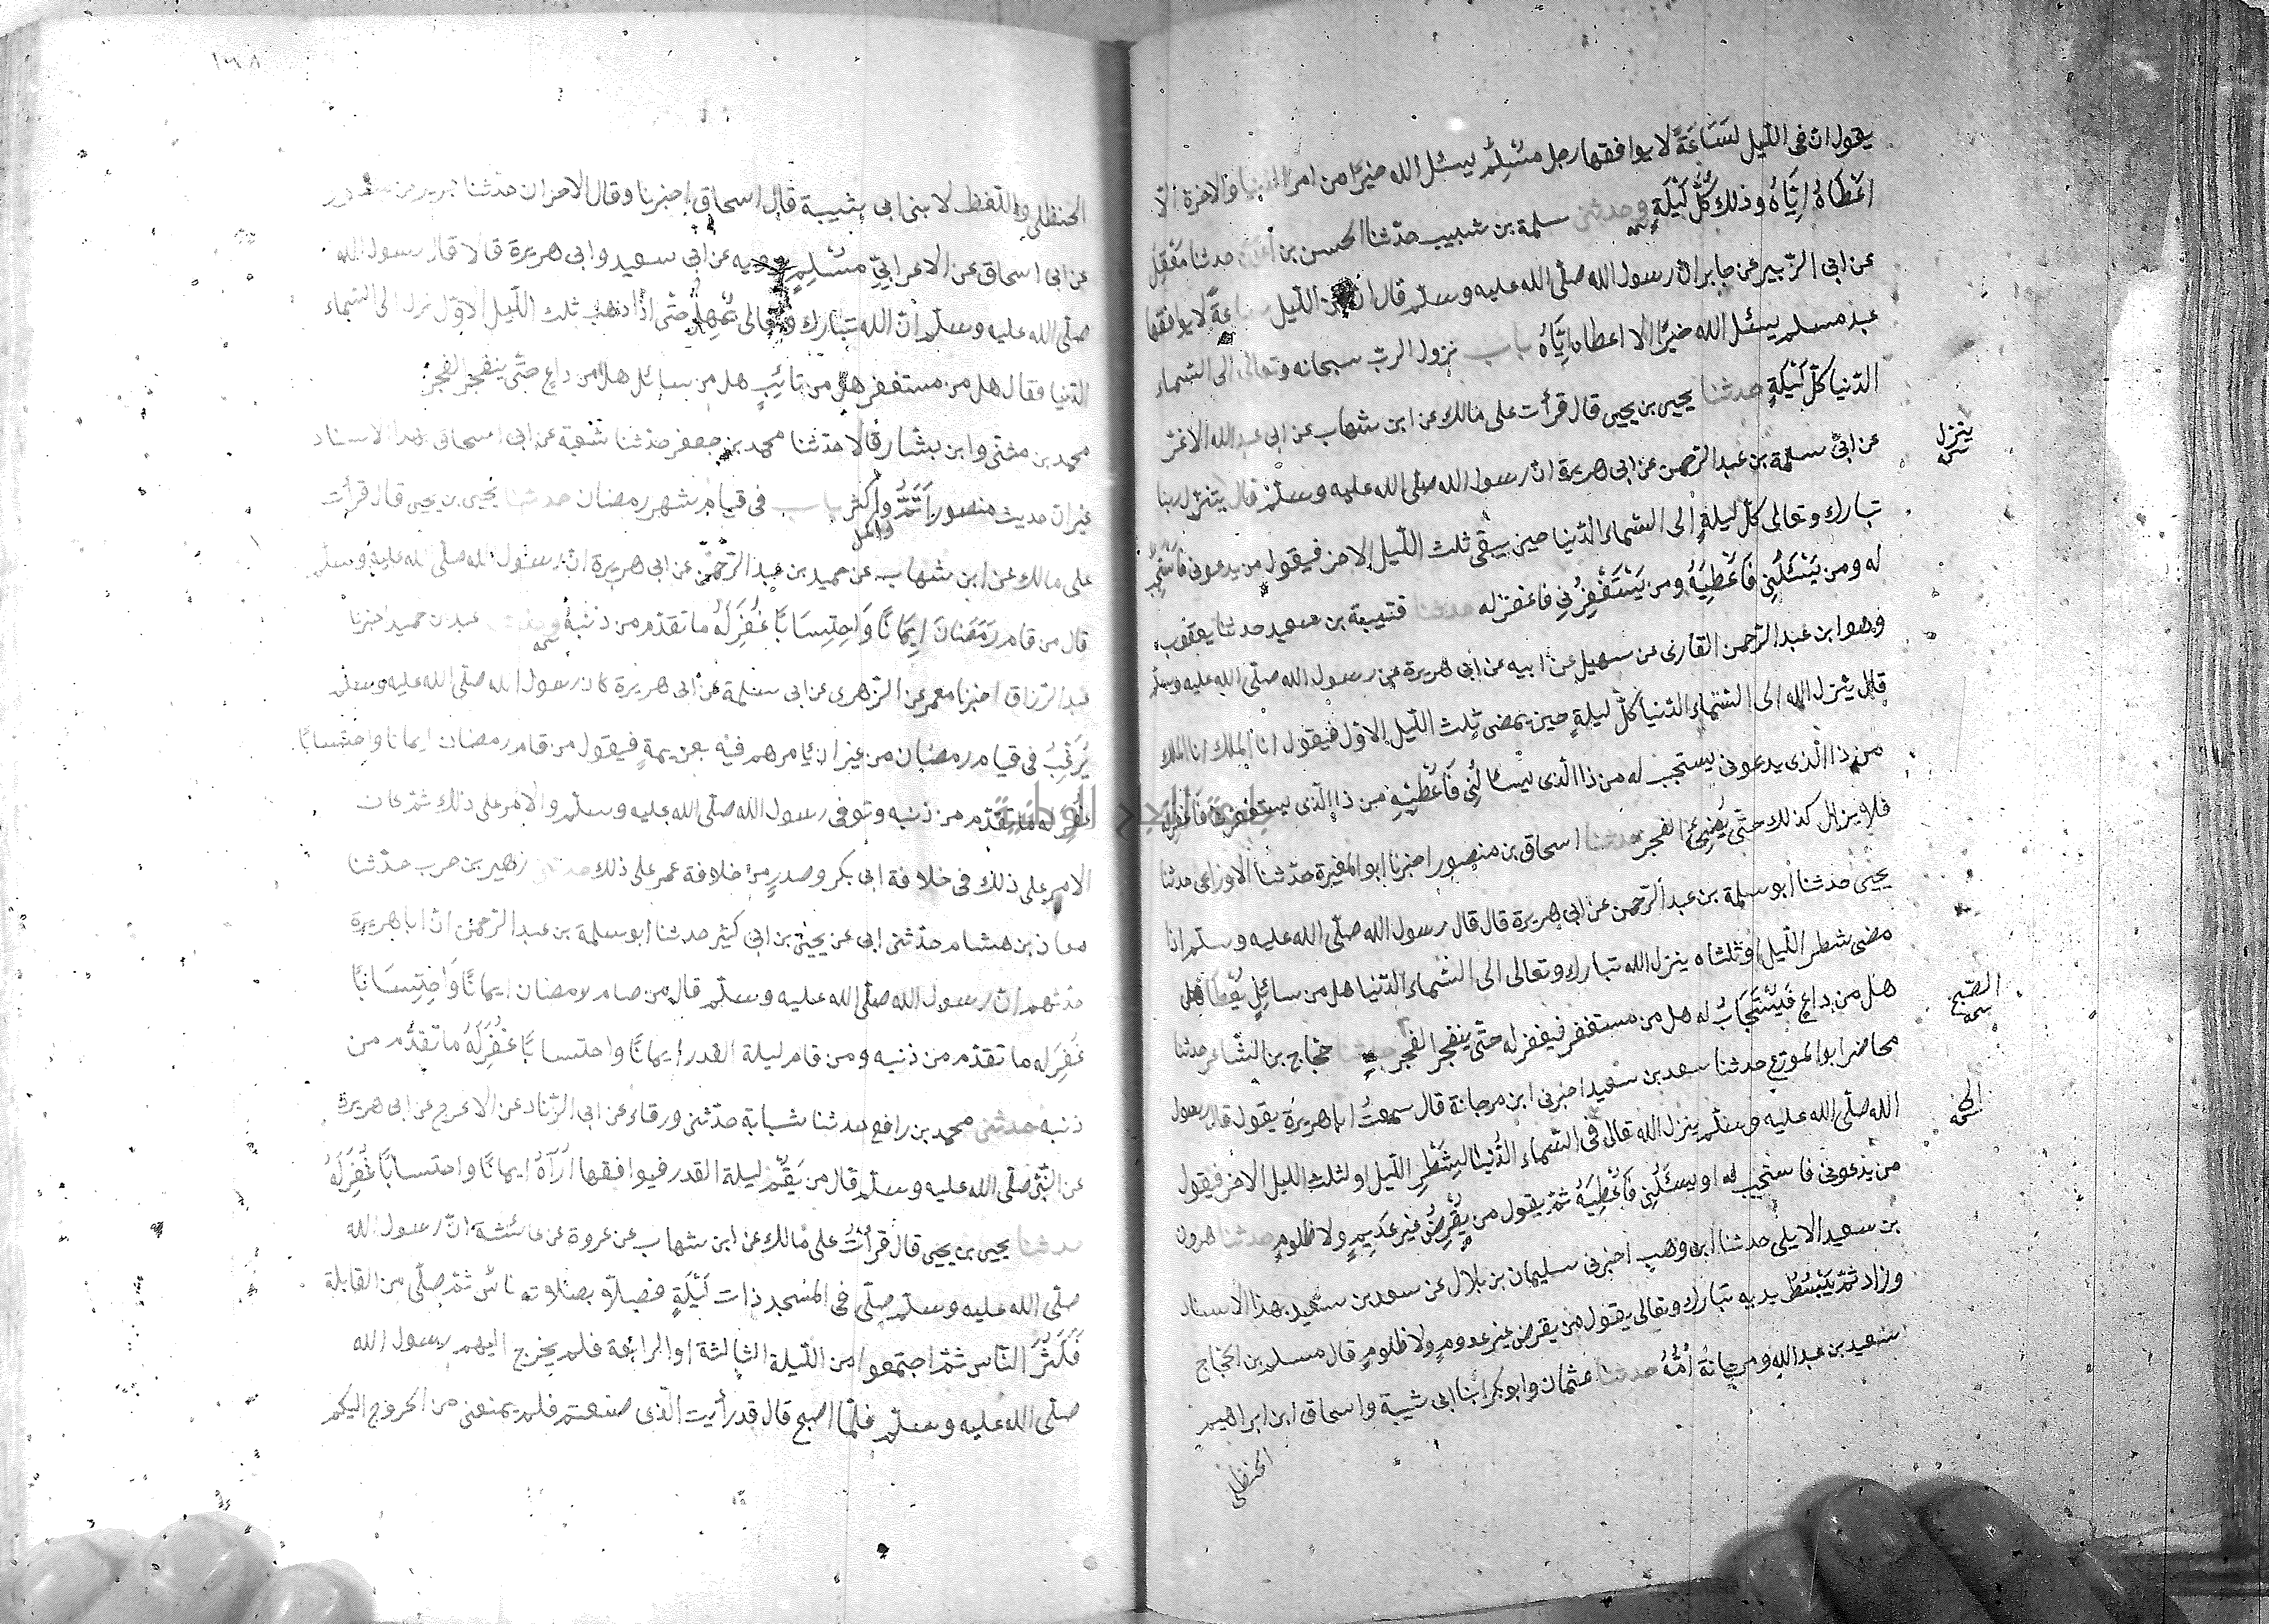 يقول ان فى اللّيل لسَاعَةً لا يوافقها رجل مسْلِمٌ يسئل الله خيرًا من امر الدنيا والاخرة الّا
اعْطَاهُ اِيَّاهُ وذلك كُلَّ لَيْلَةٍ وحدثنى سلمة بن شبيب حدّثنا الحسن بن اعين حدثنا مَعْقِل
عن ابى الزّبير عن جابر انّ رسول الله صلّى الله عليه وسلّم قال انّ من اللّيل ساعةً لا يوافقها
عبد مسلم يسئل الله خيرًا الا اعطاه اِيَّاهُ باب نزول الربّ سبحانه وتعالى الى السّماء
الدّنيا كلّ لَيْلَةٍ حدثنا يحيى بن يحيى قال قرأت على مالك عن ابن شهاب عن ابى عبد الله الاغرّ
عن ابىْ سلمة بن عبد الرّحمن عن ابى هريرة انّ رسول الله صلّى الله عليه وسلّم قال يتنزل ربنا
ينزل
تبارك وتعالى كلّ ليلةٍ الى السّماء الدّنيا حين يبقى ثلث اللّيل الاخر فيقول من يدعونى فاستجيب
له ومن يَسْئَلُنِى فَاعْطِيَهُ ومن يَسْتَغْفِرُنِى فاغفر له حدثنا قتيبة بن سعيد حدثنا يعقوب
وهو ابن عبد الرّحمن القارى عن سهيل عن ابيه عن ابى هريرة عن رسول الله صلّى الله عليه وسلّم
قال ينزل الله الى السّماء الدّنيا كلّ ليلةٍ حين يمضى ثلث اللّيل الاوّل فيقول انا الملك انا الملك
من ذا الّذى يدعونى يستجب له من ذا الّذى يسالُنِى فَاعْطِيَهِ من ذا الّذى يستغفرنى فاغفر له
فلا يزال كذلك حتّى يُضِىءَ الفجر حدثنا اسحاق بن منصور اخبرنا ابو المغيرة حدّثنا الاوزاعى حدثنا
يحيى حدثنا ابو سلمة بن عبد الرّحمن عن ابى هريرة قال قال رسول الله صلّى الله عليه وسلّم اذا
مضى شطر اللّيل او ثلثاه ينزل الله تبارك وتعالى الى السّماء الدّنيا هل من سائِلٍ يُعْطَا هل
هل من داعٍ فَيُسْتَجَابُ له هل من مستغفر فيغفر له حتّى ينفجر الفجر حدثنا حجّاج بن الشّاعر حدثنا
الصّبح
محاضر ابو المورّع حدثنا سعد بن سعيد اخبرنى ابن مرجانة قال سمعتُ ابا هريرة يقول قال رسول
الله صلّى الله عليه وسلّم ينزل الله تعالى فى السّماء الدُّنيا لِشَطْرِ اللّيل او لثلث الليل الاخر فيقول
من يدعونى فاستجيب له او يسئَلُنِى فَاعْطِيَهُ ثمّ يقول من يُقْرِضُ غير عَدِيمٍ ولا ظلومٍ حدثنا هرون
بن سعيد الايلى حدثنا ابن وهب اخبرنى سليمان بن بلال عن سعد بن سعيد بهذا الاسناد
وزاد ثمّ يَبْسُطُ يديه تبارك وتعالى يقول من يقرض غير عدومٍ ولا ظلومٍ قال مسلم بن الحجّاج
سعيد بن عبد الله ومرجانة اُمُّهُ حدثنا عثمان وابو بكر ابنا ابى شيبة واسحاق ابن ابراهيم
الحنظلى
١٣٨
الحنظلى واللّفظ لابنى ابى شيبة قال اسحاق اخبرنا وقال الاخران حدّثنا جرير عن منصور
عن ابى اسحاق عن الاغر ابى مسْلِمٍ يرويه عن ابى سعيد وابى هريرة قالا قال رسول الله
صلّى الله عليه وسلّم انّ الله تبارك وتعالى يُمْهِلُ حتّى اذا ذهب ثلث اللّيل الاوّل نزل الى السّماء
الدّنيا فقال هل من مستغفر هل من تائِبٍ هل من سائل هل من داعٍ حتّى ينفجر الفجر
محمد بن مثنّى وابن بشّار قالا حدّثنا محمد بن جعفر حدّثنا شعبة عن ابى اسحاق بهذا الاسناد
غير ان حديث منصور اَتَمُّ واكثر باب فى قيام شهر رمضان حدثنا يحيى بن يحيى قال قرأت
على مالك عن ابن شهاب عن حميد بن عبد الرّحْمن عن ابى هريرة انّ رسول الله صلّى الله عليه وسلّم
قال من قام رَمَضَانَ اِيمَانًا وَاحِتِسَابًا غُفِرَ لَهُ ما تقدّم من ذنبهُ وحدثنا عبد بن حميد اخبرنا
عبد الرّزاق اخبرنا معمر عن الزّهرى عن ابى سلمة عن ابى هريرة كان رسول الله صلّى الله عليه وسلّم
يُرَغِّبُ فى قيام رمضان من غير ان يامرهم فيه بعزيمةٍ فيقول من قام رمضان ايمانا واحتسابًا
غُفِرَ له ما تقدّم من ذنبه وتوفى رسول الله صلّى الله عليه وسلّم والامر على ذلك ثمّ كان
الامر على ذلك فى خلافة ابى بكر وصدرٍ من خلافة عمر على ذلك حدثنى زهير بن حرب حدّثنا
معاذ بن هشام حدّثنى ابى عن يحيى بن ابى كثير حدثنا ابو سلمة بن عبد الرّحمن انّ ابا هريرة
حدّثهم انّ رسول الله صلّى الله عليه وسلّم قال من صام رمضان ايمانًا وَاحِتِسَابًا
غُفِرَ له ما تقدّم من ذنبه ومن قام ليلة القدر ايمانًا واحتسابًا غُفِرَ لَهُ ما تقدّم من
ذنبه حدثنى محمد بن رافع حدثنا شبابة حدّثنى ورقاء عن ابى الزّناد عن الاعرج عن ابى هريرة
عن النّبى صلّى الله عليه وسلّم قال من يَقُمْ ليلة القدر فيوافقها اُرَاهُ ايمانًا واحتسابًا غُفِرَ لَهُ
حدثنا يحيى بن يحيى قال قرأتُ على مالك عن ابن شهاب عن عروة عن عائشة انّ رسول الله
صلّى الله عليه وسلّم صلّى فى المسجد ذات لَيْلَةٍ فصلّى بصلاته ناسٌ ثمّ صلّى من القابلة
فَكَثُرَ النّاس ثمّ اجتمعوا من اللّيلة الثّالثة او الرابعة فلم يخرج اليهم رسول الله
صلّى الله عليه وسلّم فلمّا اصبح قال قد رأيت الّذى صنعتم فلم يمنعنى من الخروج اليكم